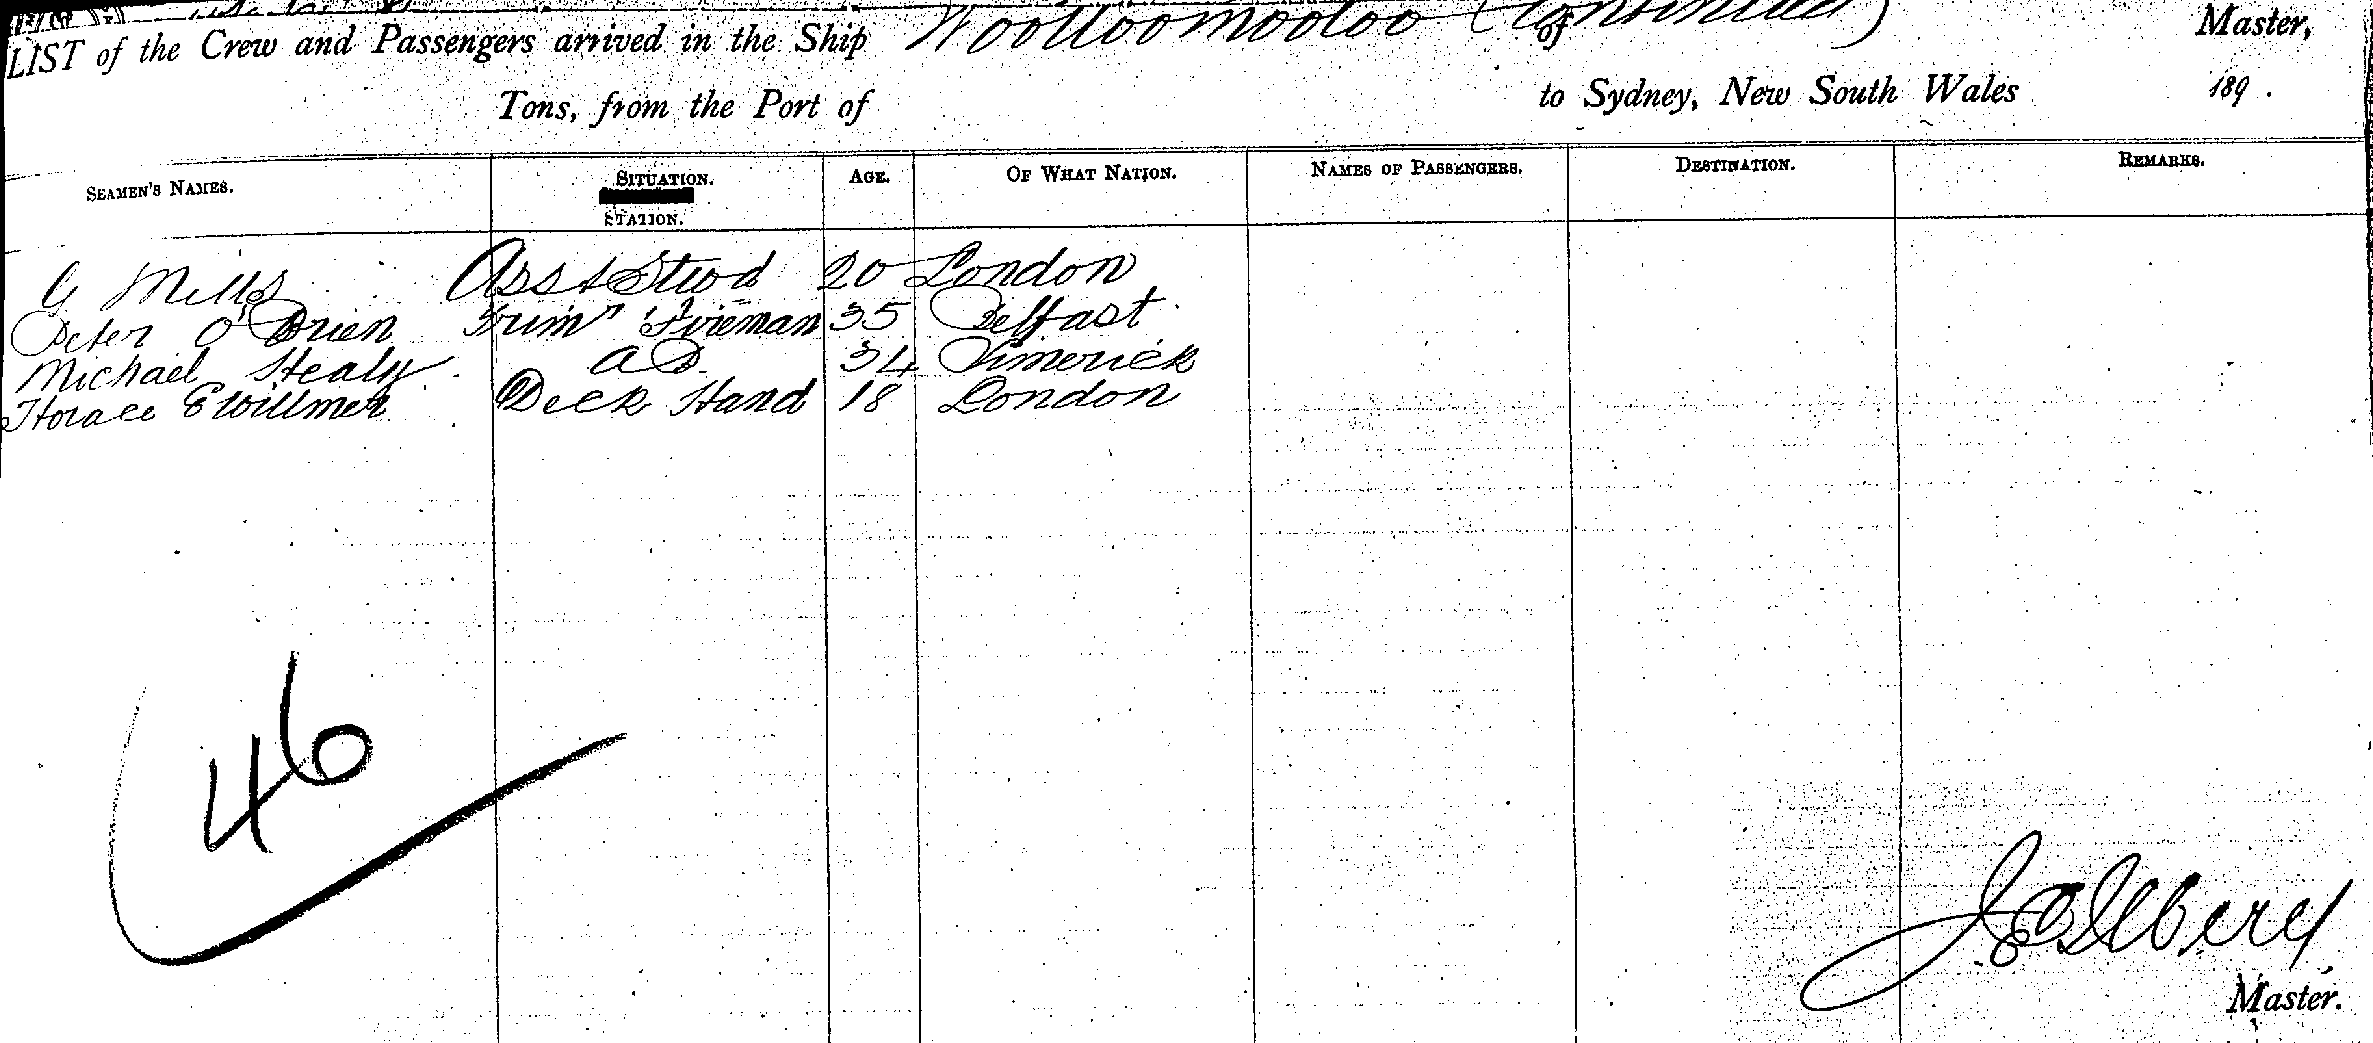 LIST of the Crew and Passengers arrived in the Ship Woolloomooloo (Continued) of Master,
Tons, from the Port of to Sydney, New South Wales 189 .
SEAMEN'S NAMES. SITUATION. STATION. AGE. OF WHAT NATION. NAMES OF PASSENGERS. DESTINATION. REMARKS.
G Mills Asst Stwd 20 London
Peter O'Brien Trimr Fireman 35 Belfast
Michael Healy AB. 34 Limerick
Horace E Willmer Deck Hand 18 London
46
Master.